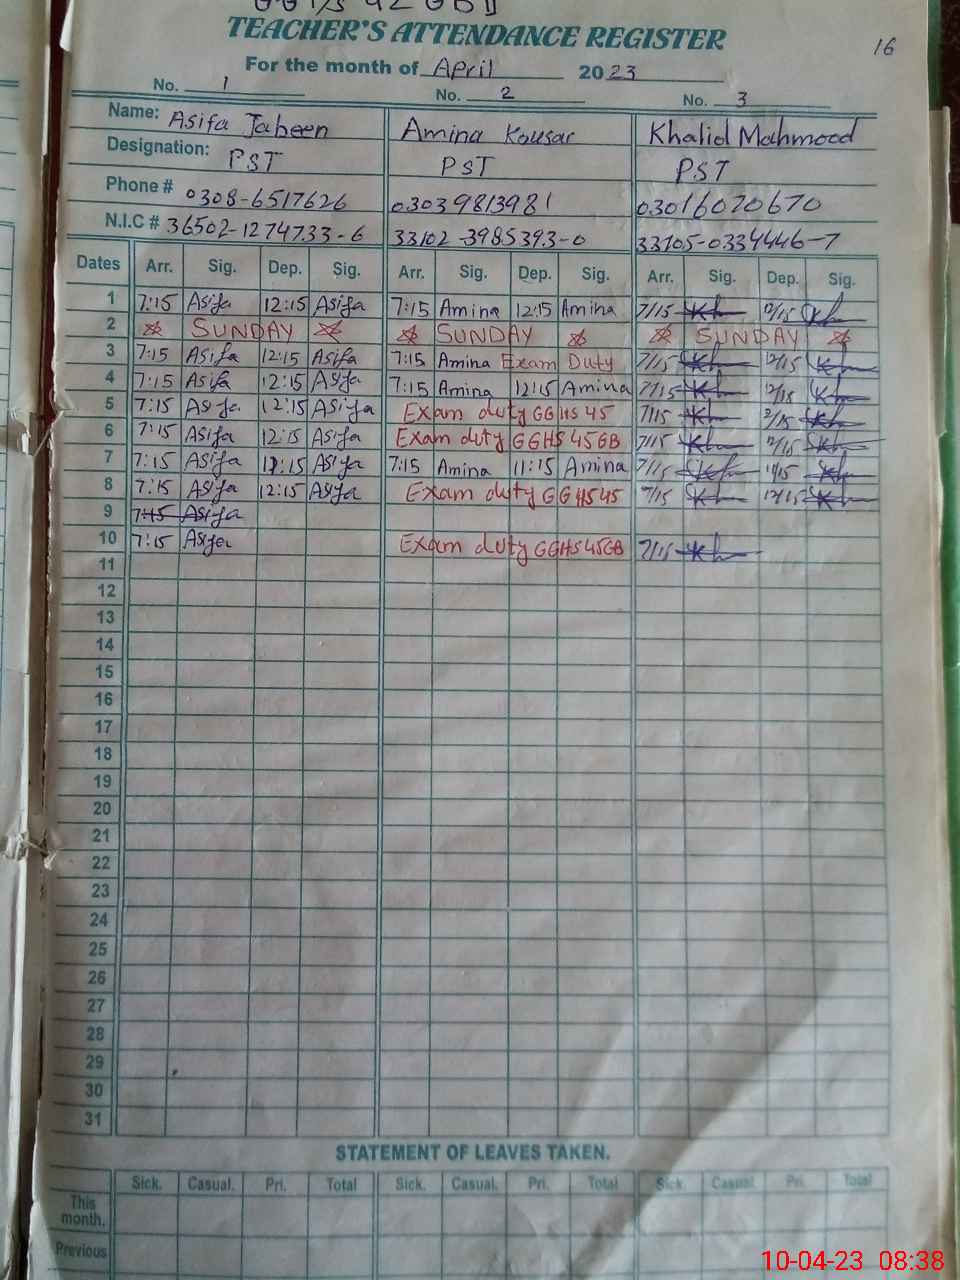 TEACHER'S ATTENDANCE REGISTER
16
For the month of April 2023
No. 1 No. 2 No. 3
Name: Asifa Jabeen Amina Kousar Khalid Mahmood
Designation: PST PST PST
Phone # 0308-6517626 03039813981 03016020670
N.I.C # 36502-1274733-6 33102-3985393-0 33105-0334446-7
Dates Arr. Sig. Dep. Sig. Arr. Sig. Dep. Sig. Arr. Sig. Dep. Sig.
1 7:15 Asifa 12:15 Asifa 7:15 Amina 12:15 Amina 7/15 12/15
2 SUNDAY SUNDAY SUNDAY
3 7:15 Asifa 12:15 Asifa 7:15 Amina Exam Duty 7/15 12/15
4 7:15 Asifa 12:15 Asifa 7:15 Amina 12:15 Amina 7/15 12/15
5 7:15 Asifa 12:15 Asifa Exam duty GGHS 45 7/15 12/15
6 7:15 Asifa 12:15 Asifa Exam duty GGHS 45GB 7/15 12/15
7 7:15 Asifa 11:15 Asifa 7:15 Amina 11:15 Amina 7/15 11/15
8 7:15 Asifa 12:15 Asifa Exam duty GGHS 45 7/15 12/15
9 7:15 Asifa
10 7:15 Asifa Exam duty GGHS 45GB 7/15
11
12
13
14
15
16
17
18
19
20
21
22
23
24
25
26
27
28
29
30
31
STATEMENT OF LEAVES TAKEN.
Sick. Casual. Pri. Total Sick. Casual. Pri. Total Sick. Casual. Pri. Total
This month.
Previous
10-04-23 08:38